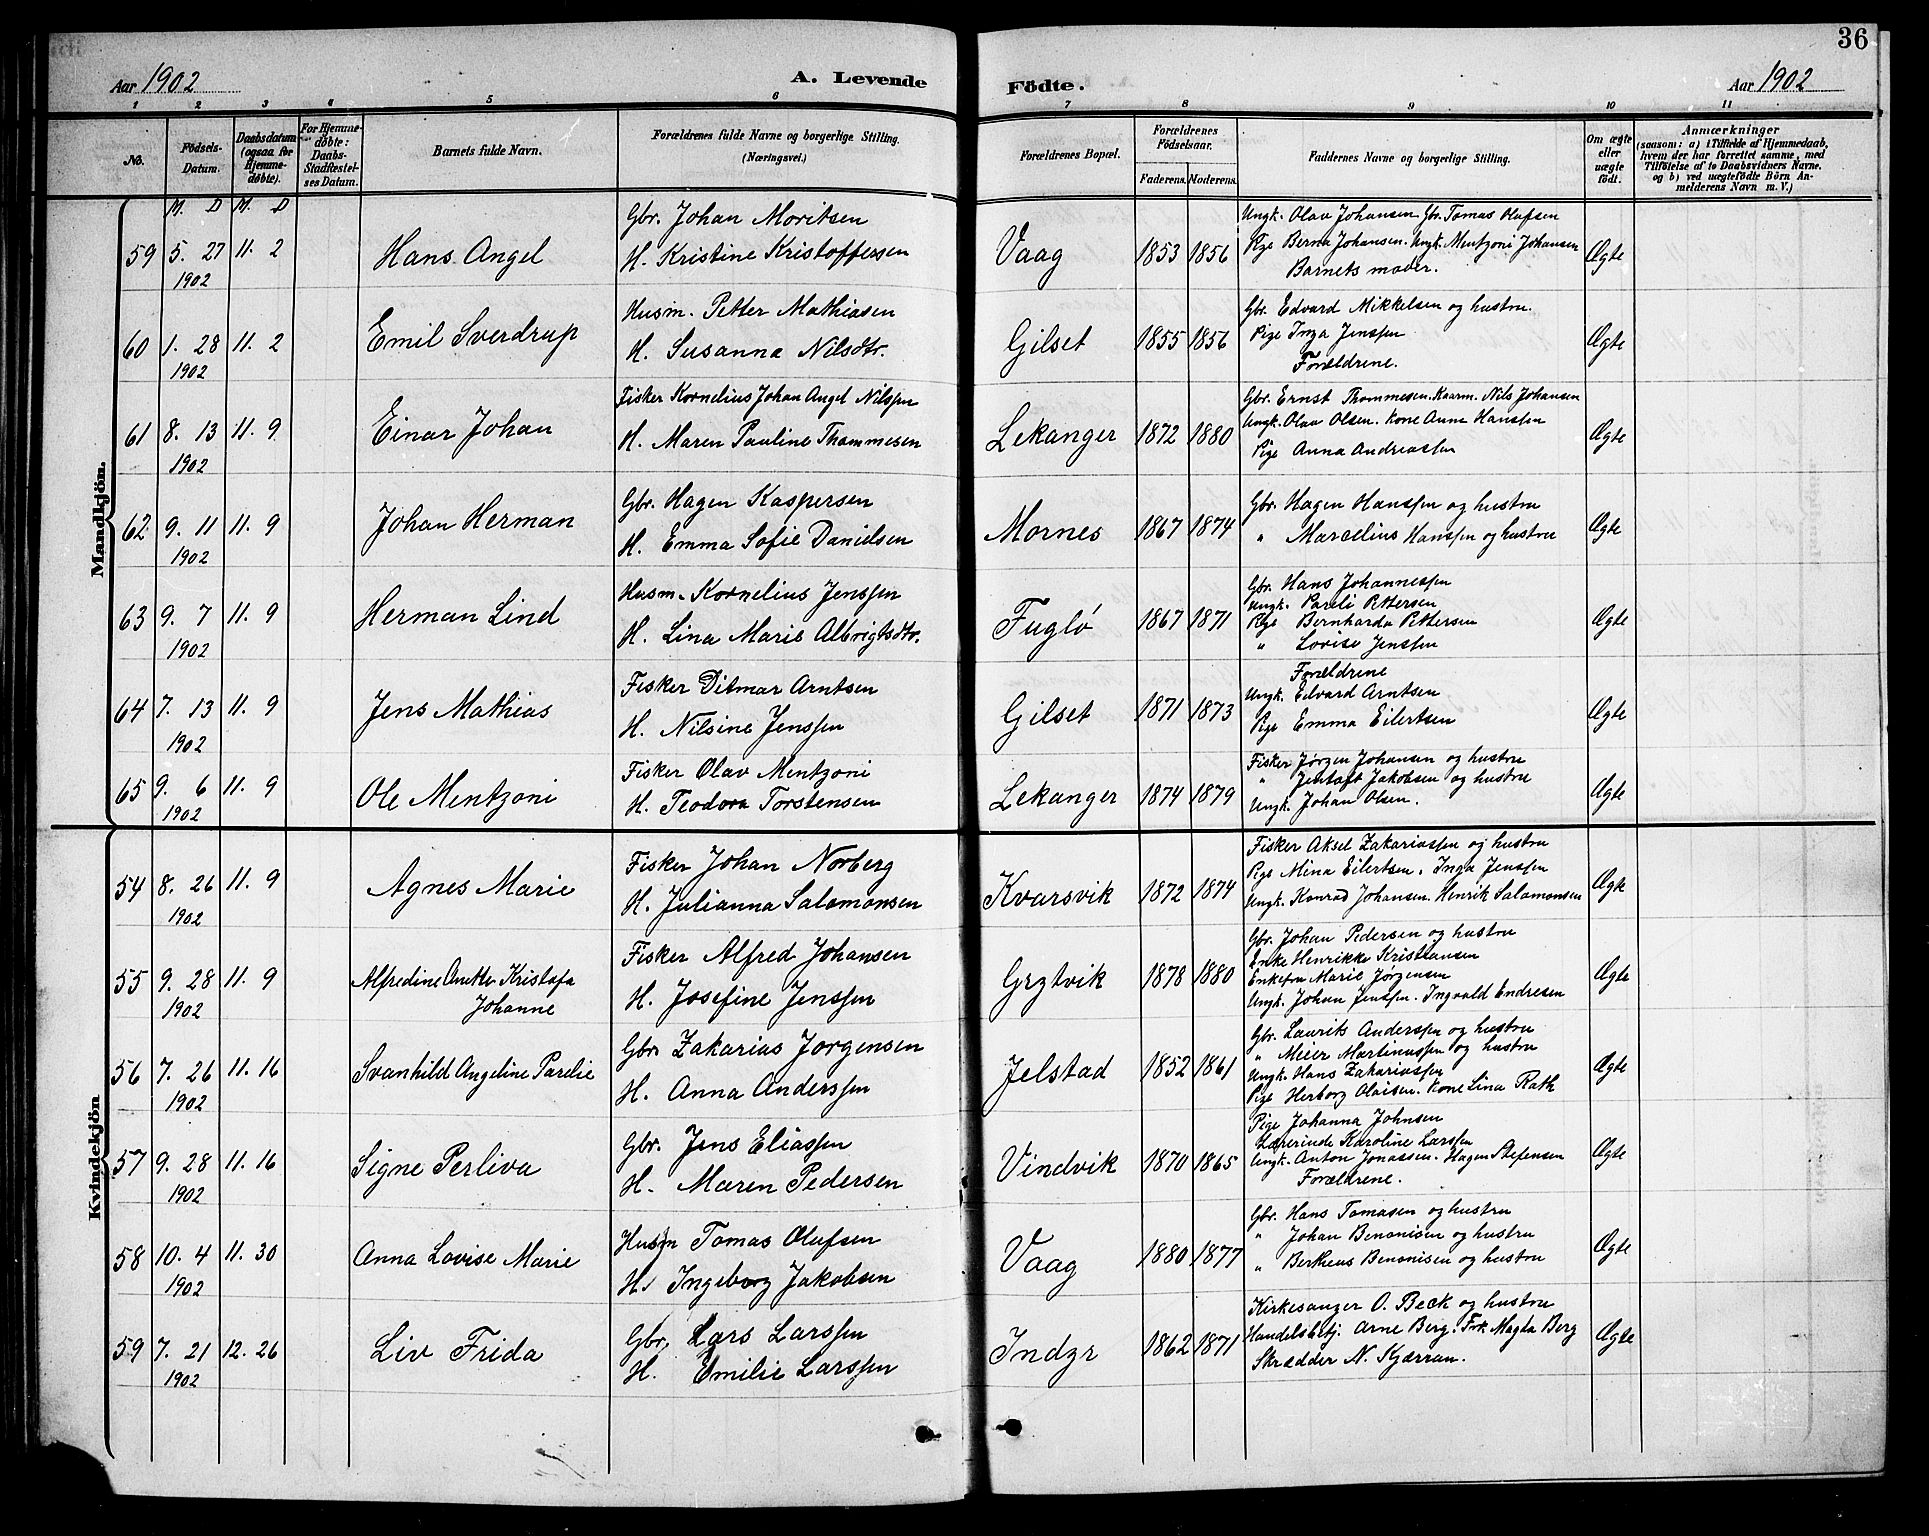 36
Aar 1902
A. Levende
Födte.
Aar 1902
1 2 3 4 5 6 7 8 9 10 11
No.
Födsels-Datum.
Daabsdatum (ogsaa for Hjemme-döbte).
For Hjemme-döbte: Daabs-Stadfæstel-ses Datum.
Barnets fulde Navn.
Forældrenes fulde Navne og borgerlige Stilling. (Næringsvei.)
Forældrenes Bopæl.
Forældrenes Födselsaar.
Faderens. Moderens.
Faddernes Navne og borgerlige Stilling.
Om ægte eller uægte födt.
Anmærkninger
(saasom: a) i Tilfælde af Hjemmedaab, hvem der har forrettet samme, med Tilföielse af to Daabsvidners Navne, og b) ved uægtefödte Börn An-melderens Navn m. V.)
Mandkjön.
M. D M. D
59 5. 27 1902 11. 2 Hans Angel
Gbr. Johan Moritsen
H. Kristine Kristoffersen
Vaag 1853 1856
Ungk. Olav Johansen. Gbr. Tomas Olufsen
Pige Berna Johansen. Ungk. Mentzoni Johansen
Barnets moder.
Ægte
60 1. 28 1902 11. 2 Emil Sverdrup
Husm. Petter Mathiasen
H. Susanna Nilsdtr.
Gilset 1855 1856
Gbr. Edvard Mikkelsen og hustru.
Pige Inga Jenssen
Forældrene.
Ægte
61 8. 13 1902 11. 9 Einar Johan
Fisker Kornelius Johan Angel Nilssen
H. Maren Pauline Thommesen
Lekanger 1872 1880
Gbr. Ernst Thommesen. Kaarm. Nils Johansen
Ungk. Olav Olsen. Kone Anne Hanssen
Pige Anna Andreassen
Ægte
62 9. 11 1902 11. 9 Johan Herman
Gbr. Hagen Kaspersen
H. Emma Sofie Danielsen
Mornes 1867 1874
Gbr. Hagen Hanssen og hustru
" Marcelius Hanssen og hustru
Ægte
63 9. 7 1902 11. 9 Herman Lind
Husm. Kornelius Jenssen
H. Lina Marie Albrigtsdtr.
Fuglø 1867 1871
Gbr. Hans Johannessen
Ungk. Pareli Pettersen
Pige Bernharda Pettersen
" Lovise Jenssen
Forældrene
Ægte
64 7. 13 1902 11. 9 Jens Mathias
Fisker Ditmar Arntsen
H. Nilsine Jenssen
Gilset 1871 1873
Ungk. Edvard Arntsen
Pige Emma Eilertsen
Ægte
65 9. 6 1902 11. 9 Ole Mentzoni
Fisker Olav Mentzoni
H. Teodora Torstensen
Lekanger 1874 1879
Fisker Jørgen Johansen og hustru
" Jentoft Jakobsen og hustru
Ungk. Johan Olsen.
Ægte
Kvindekjön
54 8. 26 1902 11. 9 Agnes Marie
Fisker Johan Norberg
H. Julianna Salomonsen
Kvarsvik 1872 1874
Fisker Aksel Zakariassen og hustru
Pige Mina Eilertsen. Inga Jenssen
Ungk. Konrad Johansen. Henrik Salomonsen
Ægte
55 9. 28 1902 11. 9 Alfredine Anette Kristofa
Johanne
Fisker Alfred Johansen
H. Josefine Jenssen
Grytvik 1878 1880
Gbr. Johan Pedersen og hustru
Enke Henrikke Kristiansen
Enkefru Marie Jørgensen
Ungk. Johan Jenssen. Ingvald Endresen
Ægte
56 7. 26 1902 11. 16 Svanhild Angeline Parelie
Gbr. Zakarias Jørgensen
H. Anna Anderssen
Jelstad 1852 1861
Gbr. Laurits Anderssen og hustru
" Meier Martinussen og hustru
Ungk. Hans Zakariassen
Pige Herborg Olaisen. Kone Lina Rath
Ægte
57 9. 28 1902 11. 16 Signe Perliva
Gbr. Jens Eliassen
H. Maren Pedersen
Vindvik 1870 1865
Pige Johanna Johnsen
Lærerinde Karoline Larssen
Ungk. Anton Jonassen. Hagen Stefensen
Forældrene.
Ægte
58 10. 4 1902 11. 30 Anna Lovise Marie
Husm Tomas Olufsen
H. Ingeborg Jakobsen
Vaag 1880 1877
Gbr. Hans Tomasen og hustru
" Johan Benonisen og hustru
" Bertheus Benonisen og hustru
Ægte
59 7. 21 1902 12. 26 Liv Frida
Gbr. Lars Larssen
H. Emilie Larssen
Indyr 1862 1871
Kirkesanger O. Beck og hustru
Handelsbetj. Arne Berg. Frk. Magda Berg
Skrædder N. Kjærran.
Ægte